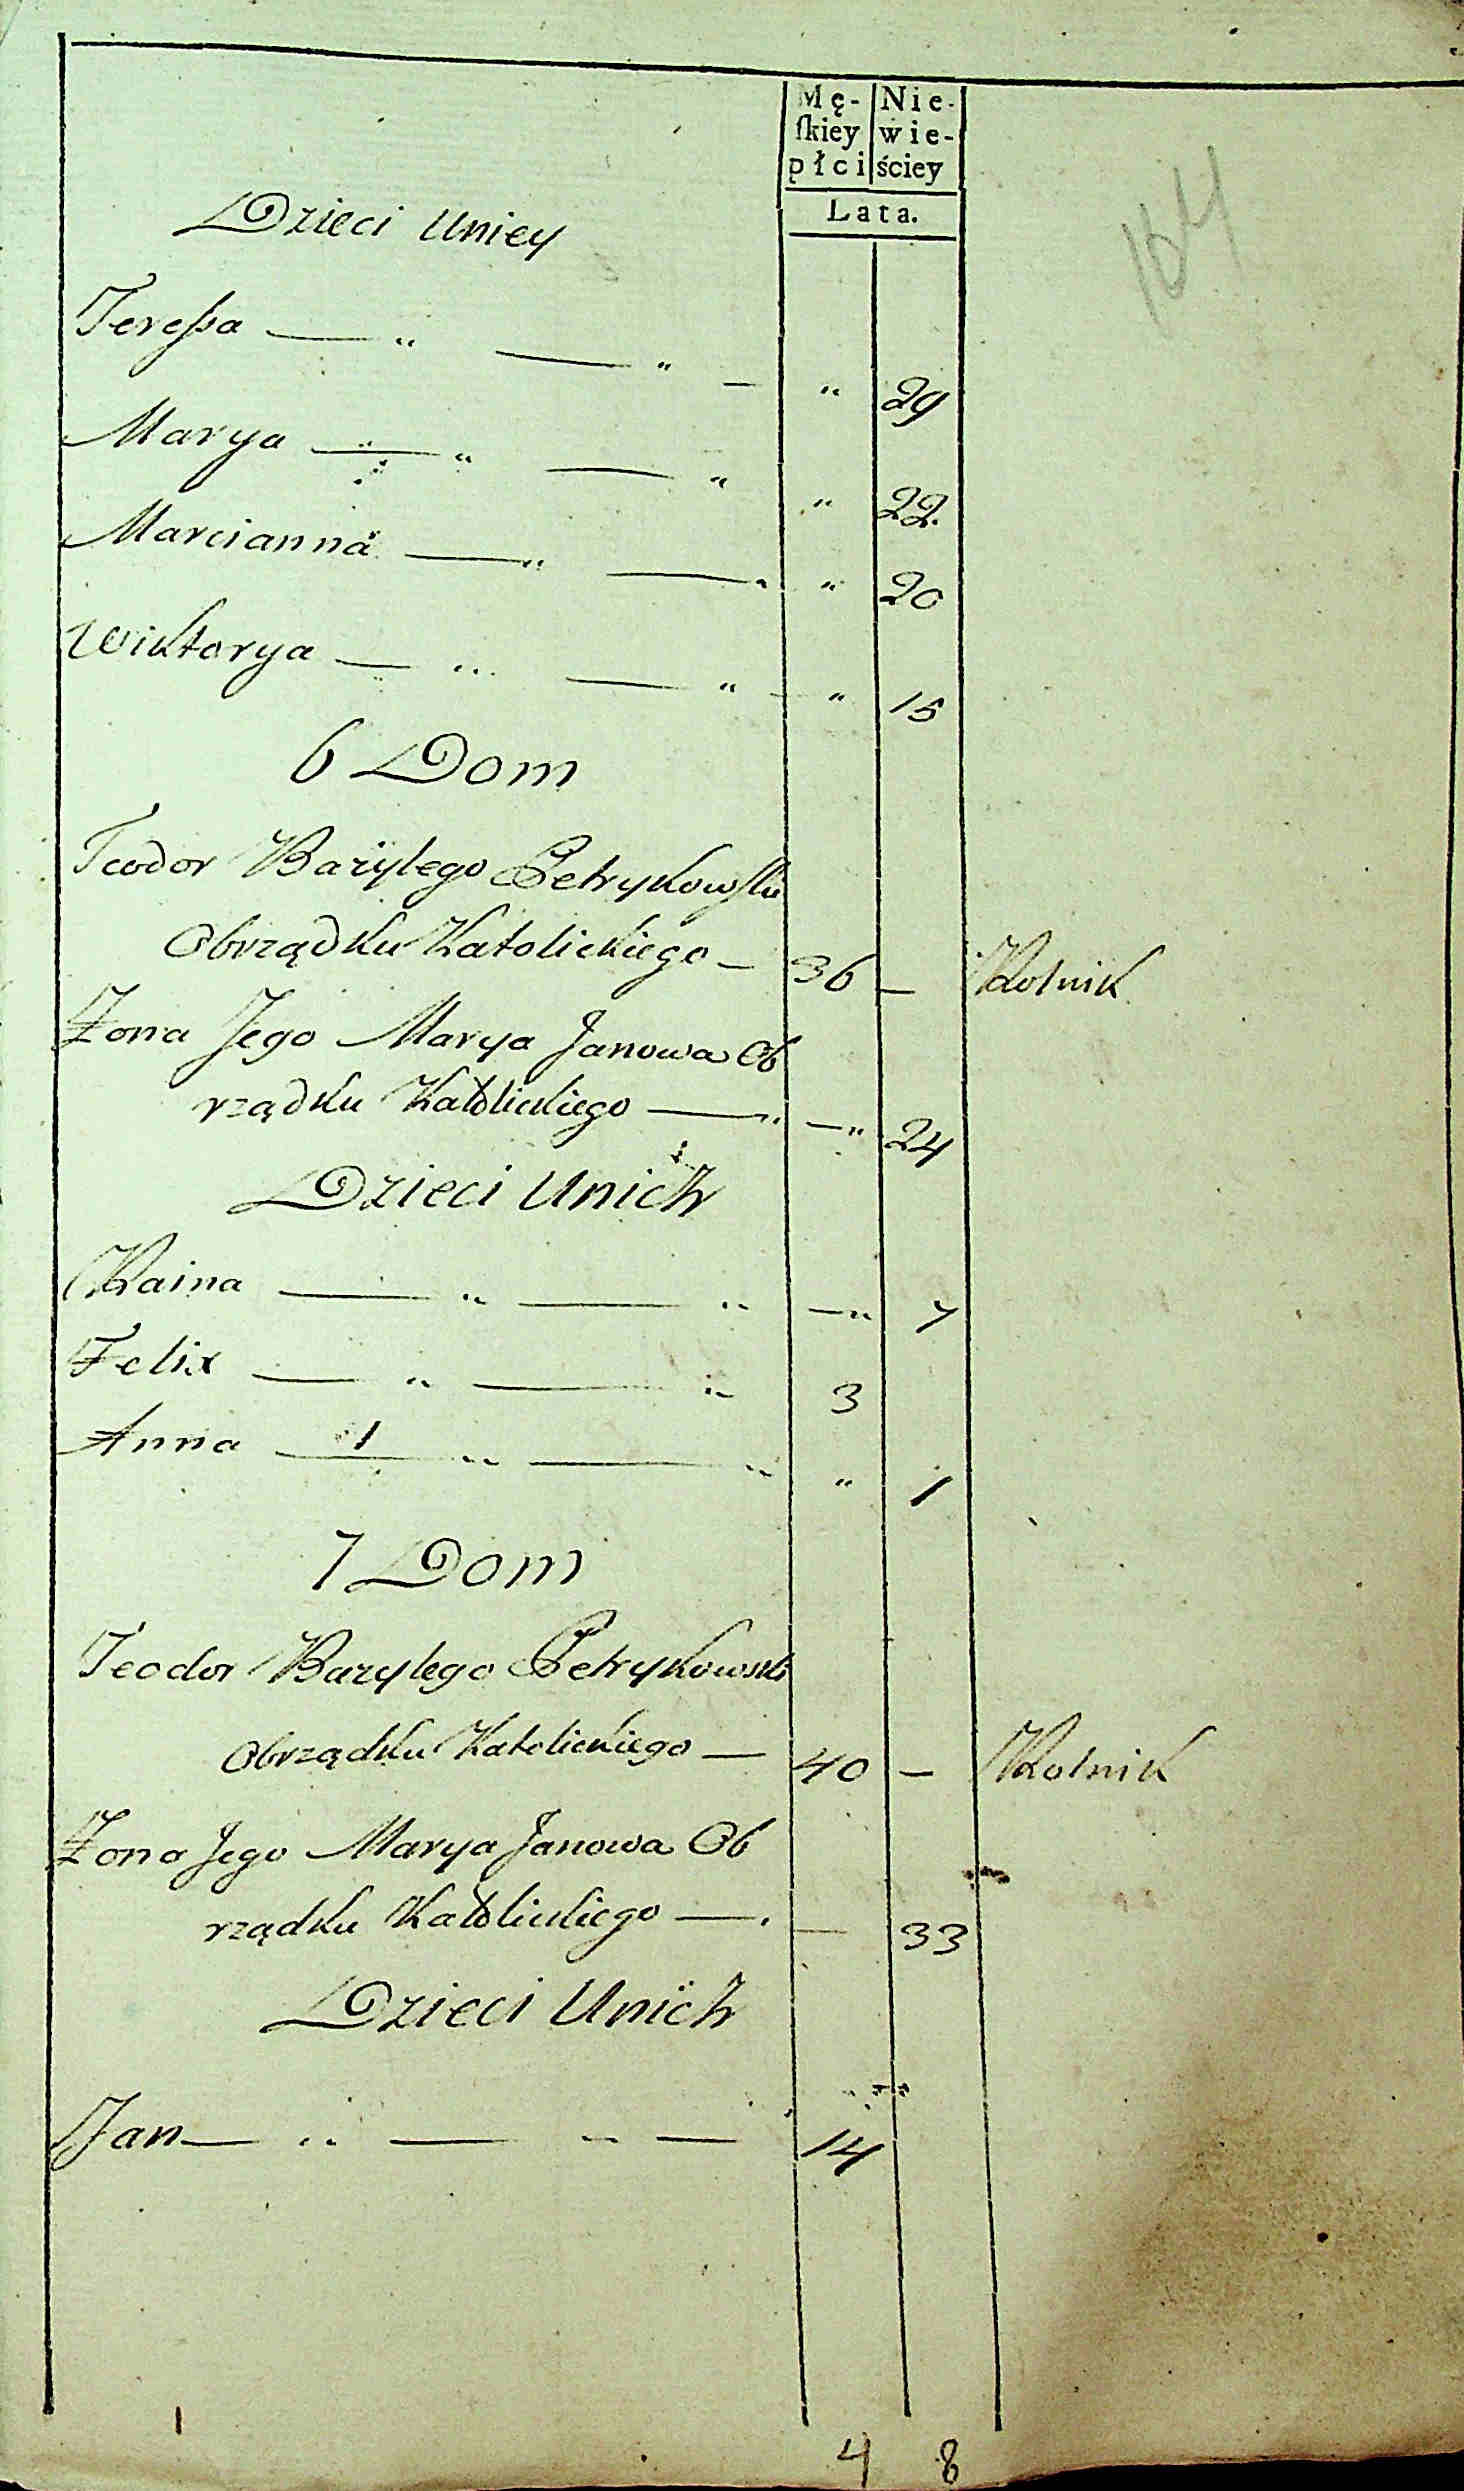 Mę- Nie-
ſkiey wie-
płci ściey
Lata.
104
Dzieci Uniey
Tereſsa — " — " — " 29
Marya — " — " " 22.
Marcianna — " — " " 20
Wiktorya — " — " - " 15
6 Dom
Teodor Bazylego Petrykowſki
Obrządku Katolickiego — 36 — Rolnik
Żona Jego Marya Janowa Ob
rządku Katolickiego — " — " 24
Dzieci Unich
Raina — " — " — " 7
Felix — " — " 3
Anna — " — " " 1
7 Dom
Teodor Bazylego Petrykowski
Obrządku Katolickiego — 40 — Rolnik
Żona Jego Marya Janowa Ob
rządku Katolickiego — — 33
Dzieci Unich
Jan — " — " — 14
4 8